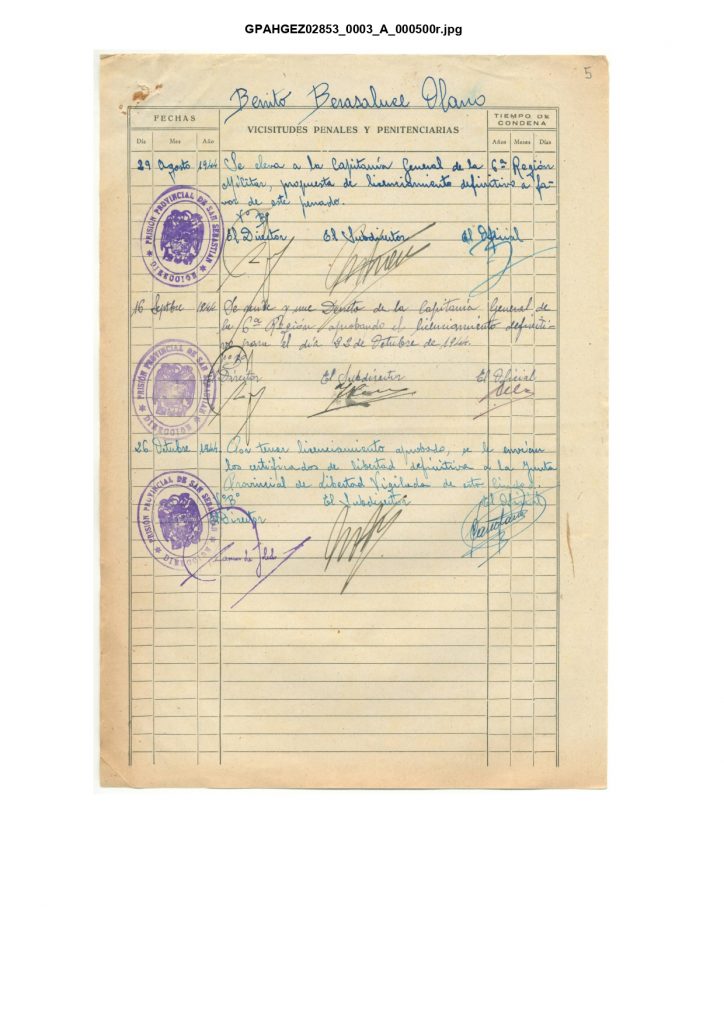 GPAHGEZ02853_0003_A_000500r.jpg
5
Benito Berasaluce Olano
FECHAS
VICISITUDES PENALES Y PENITENCIARIAS
TIEMPO DE CONDENA
Día Mes Año
Años Meses Días
29 Agosto 1944 Se eleva a la Capitanía General de la 6ª Región
Militar, propuesta de licenciamiento definitivo a fa-
vor de este penado.
Vº Bº
El Director El Subdirector El Oficial
PRISIÓN PROVINCIAL DE SAN SEBASTIAN
DIRECCION
16 Septbre 1944 Se recibe y une Decreto de la Capitanía General de
la 6ª Región aprobando el licenciamiento definiti-
vo para el día 22 de Octubre de 1944.
Vº Bº
El Director El Subdirector El Oficial
PRISIÓN PROVINCIAL DE SAN SEBASTIAN
DIRECCION
26 Octubre 1944 Por tener licenciamiento aprobado, se le envían
los certificados de libertad definitiva a la Junta
Provincial de Libertad Vigilada de esta
Vº Bº El Subdirector El
El Director
PRISIÓN PROVINCIAL DE SAN SEBASTIAN
DIRECCION